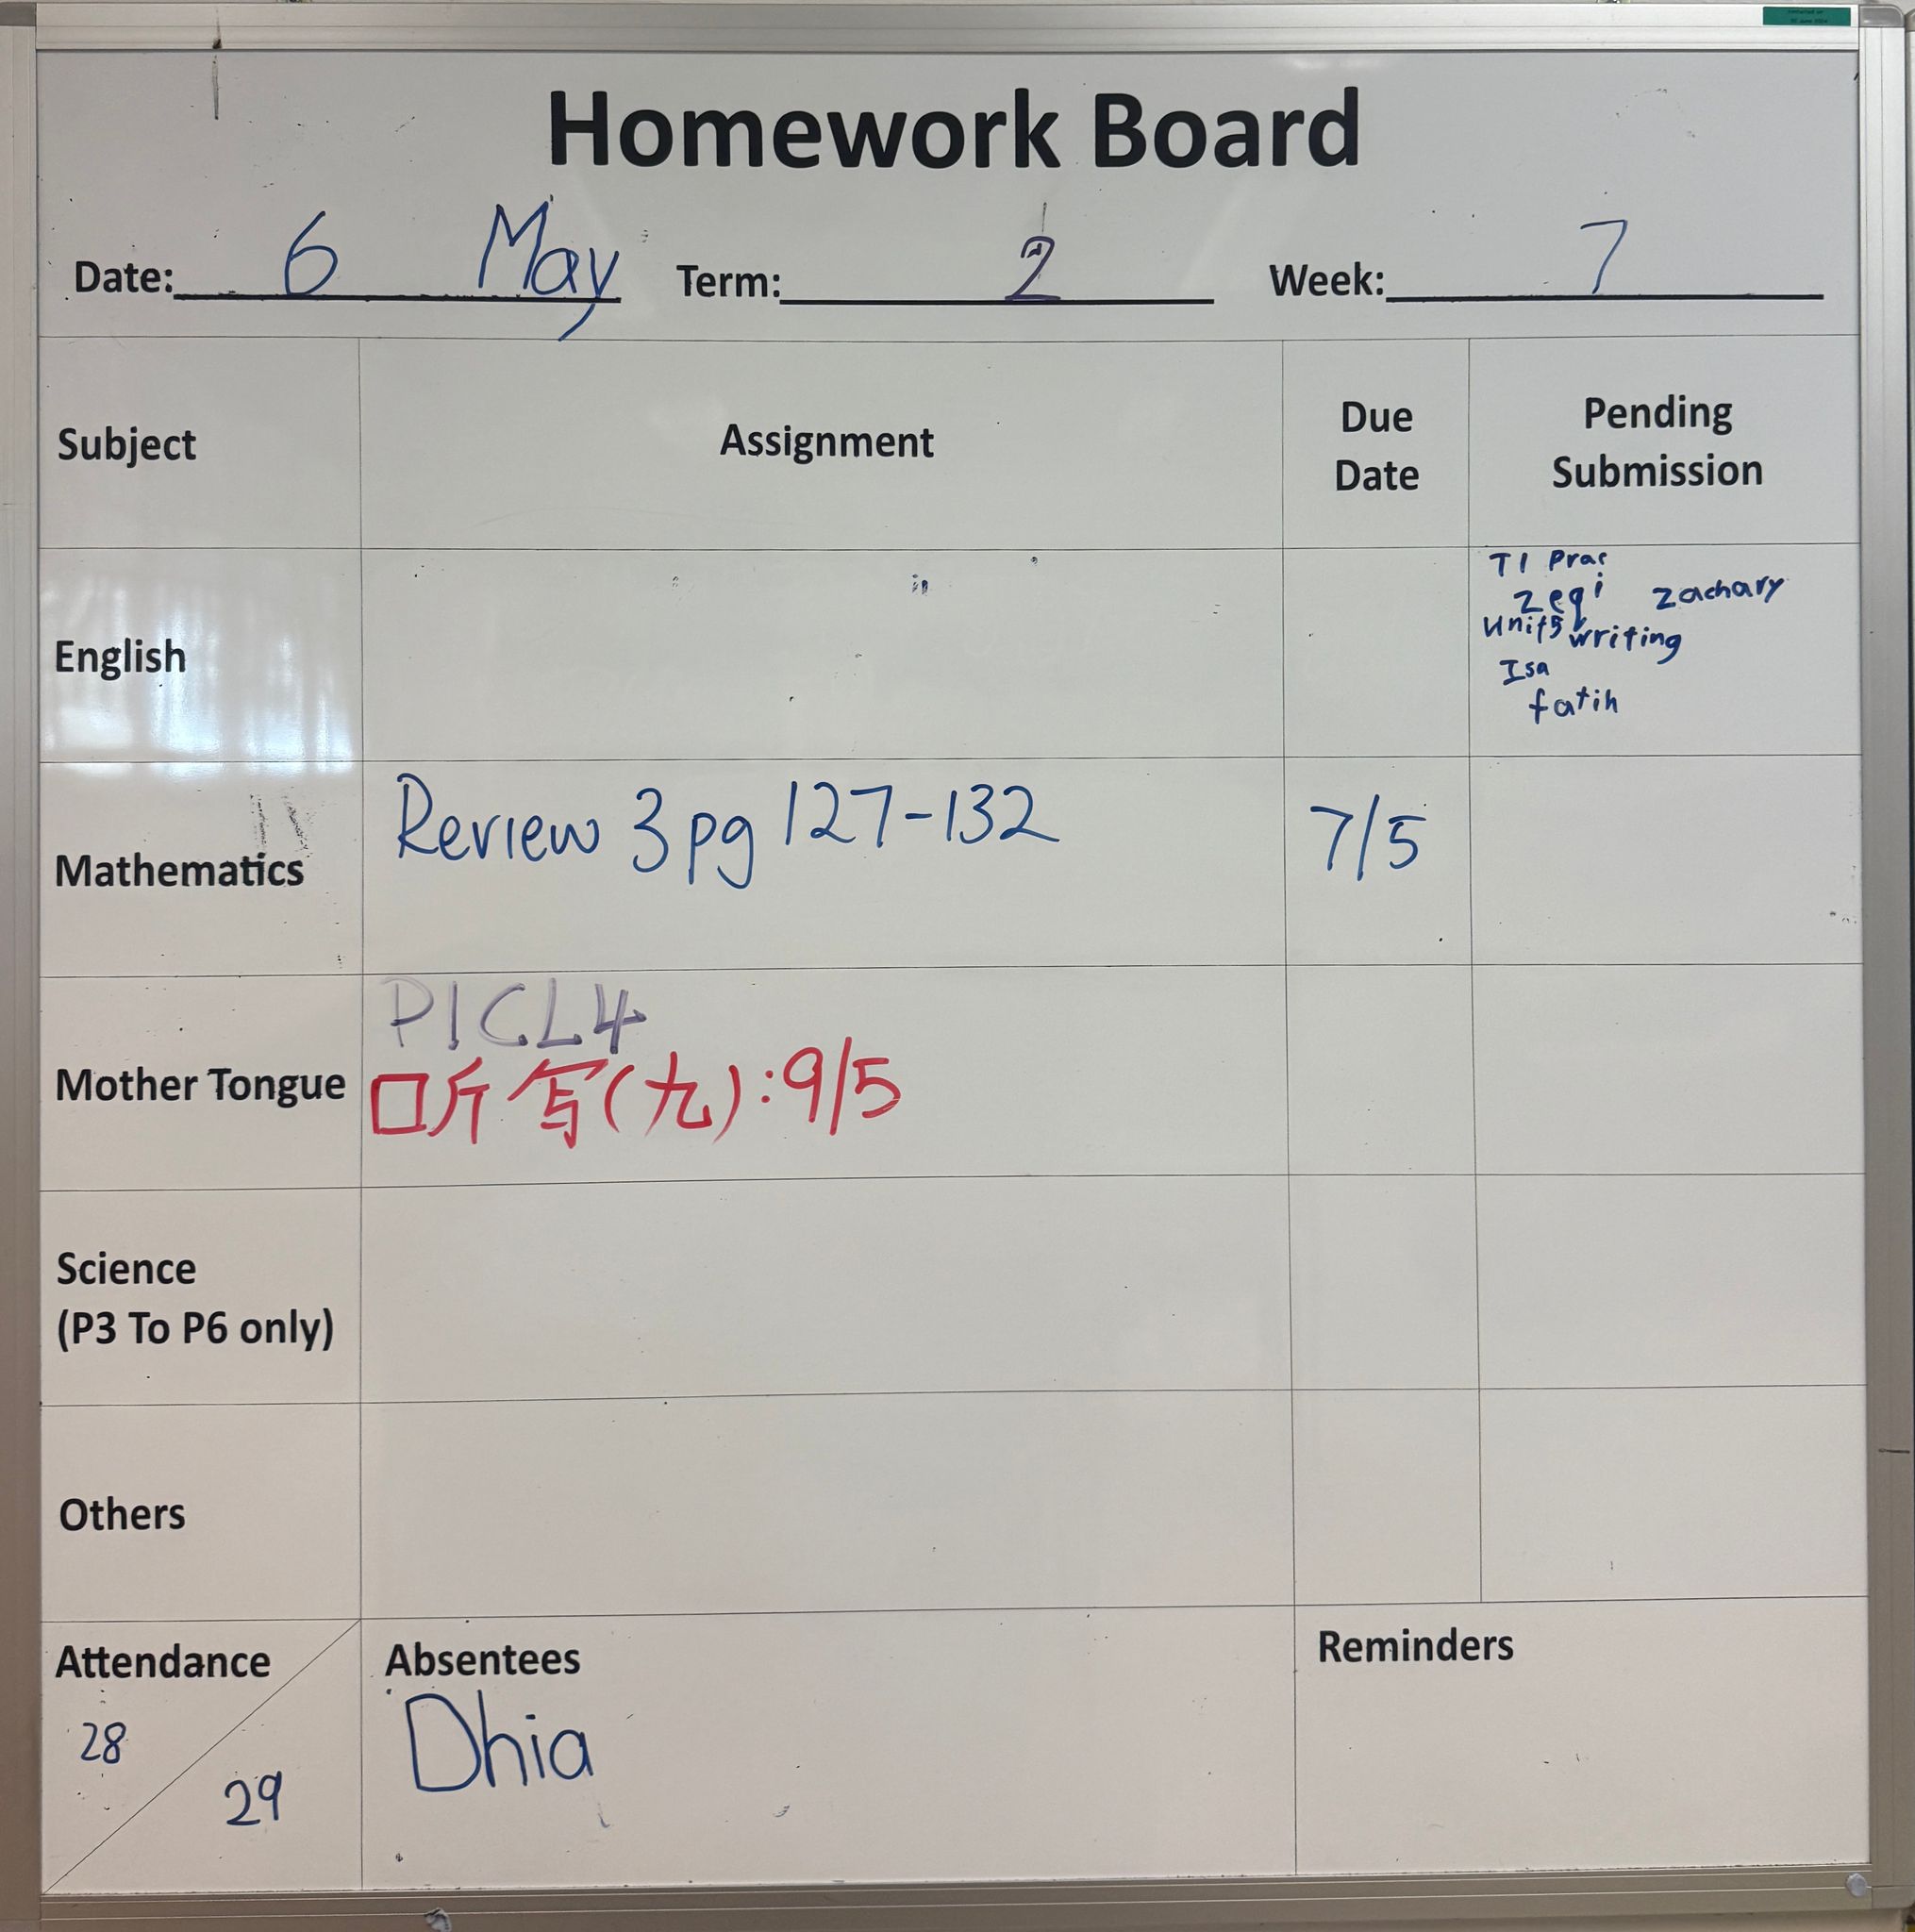 Homework Board
Date: 6 May Term: 2 Week: 7
Subject Assignment Due Date Pending Submission
English
T1 Prac
Zeqi Zachary
Unit5 writing
Isa
fatih
Mathematics Review 3 pg 127-132 7/5
Mother Tongue
P1CL4
听写(九):9/5
Science
(P3 To P6 only)
Others
Attendance Absentees Reminders
28
29 Dhia